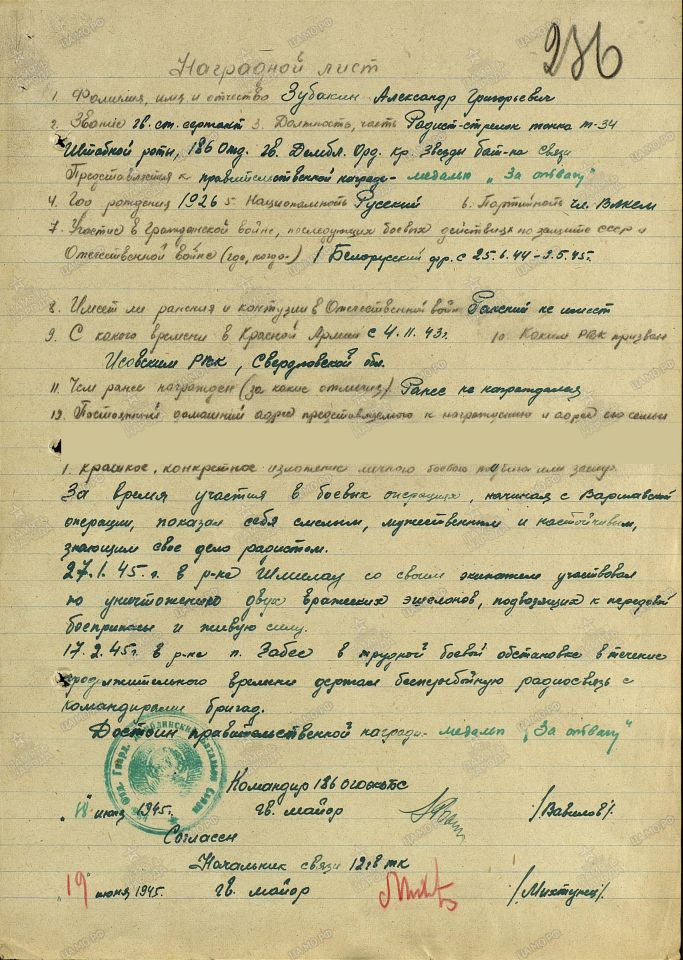 236
Наградной лист
1. Фамилия, имя и отчество Зубакин Александр Григорьевич
2. Звание гв. ст. сержант 3. Должность, часть Радист-стрелок танка Т-34
Штабной роты, 186 отд. гв. Дембл. Орд. кр. Звезды бат-на связи
Представляется к правительственной награде - медалью „За отвагу"
4. Год рождения 1926 5. Национальность Русский 6. Партийность чл. ВЛКСМ
7. Участие в гражданской войне, последующих боевых действиях по защите СССР и
Отечественной войне (где, когда) 1 Белорусский фр. с 25.6.44 - 9.5.45г.
8. Имеет ли ранения и контузии в Отечественной войне Ранений не имеет
9. С какого времени в Красной Армии с 4.11.43г. 10. Каким РВК призван
Исовским РВК, Свердловской обл.
11. Чем ранее награжден (за какие отличия) Ранее не награждался
12. Постоянный домашний адрес представляемого к награждению и адрес его семьи
1. Краткое, конкретное изложение личного боевого подвига или заслуг.
За время участия в боевых операциях, начиная с Варшавской
операции, показал себя смелым, мужественным и настойчивым,
знающим свое дело радистом.
27.1.45.г. в р-не Шмилау со своим экипажем участвовал
по уничтожению двух вражеских эшелонов, подвозящих к передовой
боеприпасы и живую силу.
17.2.45г. в р-не п. Забес в трудной боевой обстановке в течение
продолжительного времени держал бесперебойную радиосвязь с
командирами бригад.
Достоин правительственной награды - медалью „За отвагу"
Командир 186
июня 1945г. гв. майор /Вавилов/
Согласен
Начальник связи 12 гв тк
"19" июня 1945. гв. майор /Михтунец/
ЦАМО.РФ